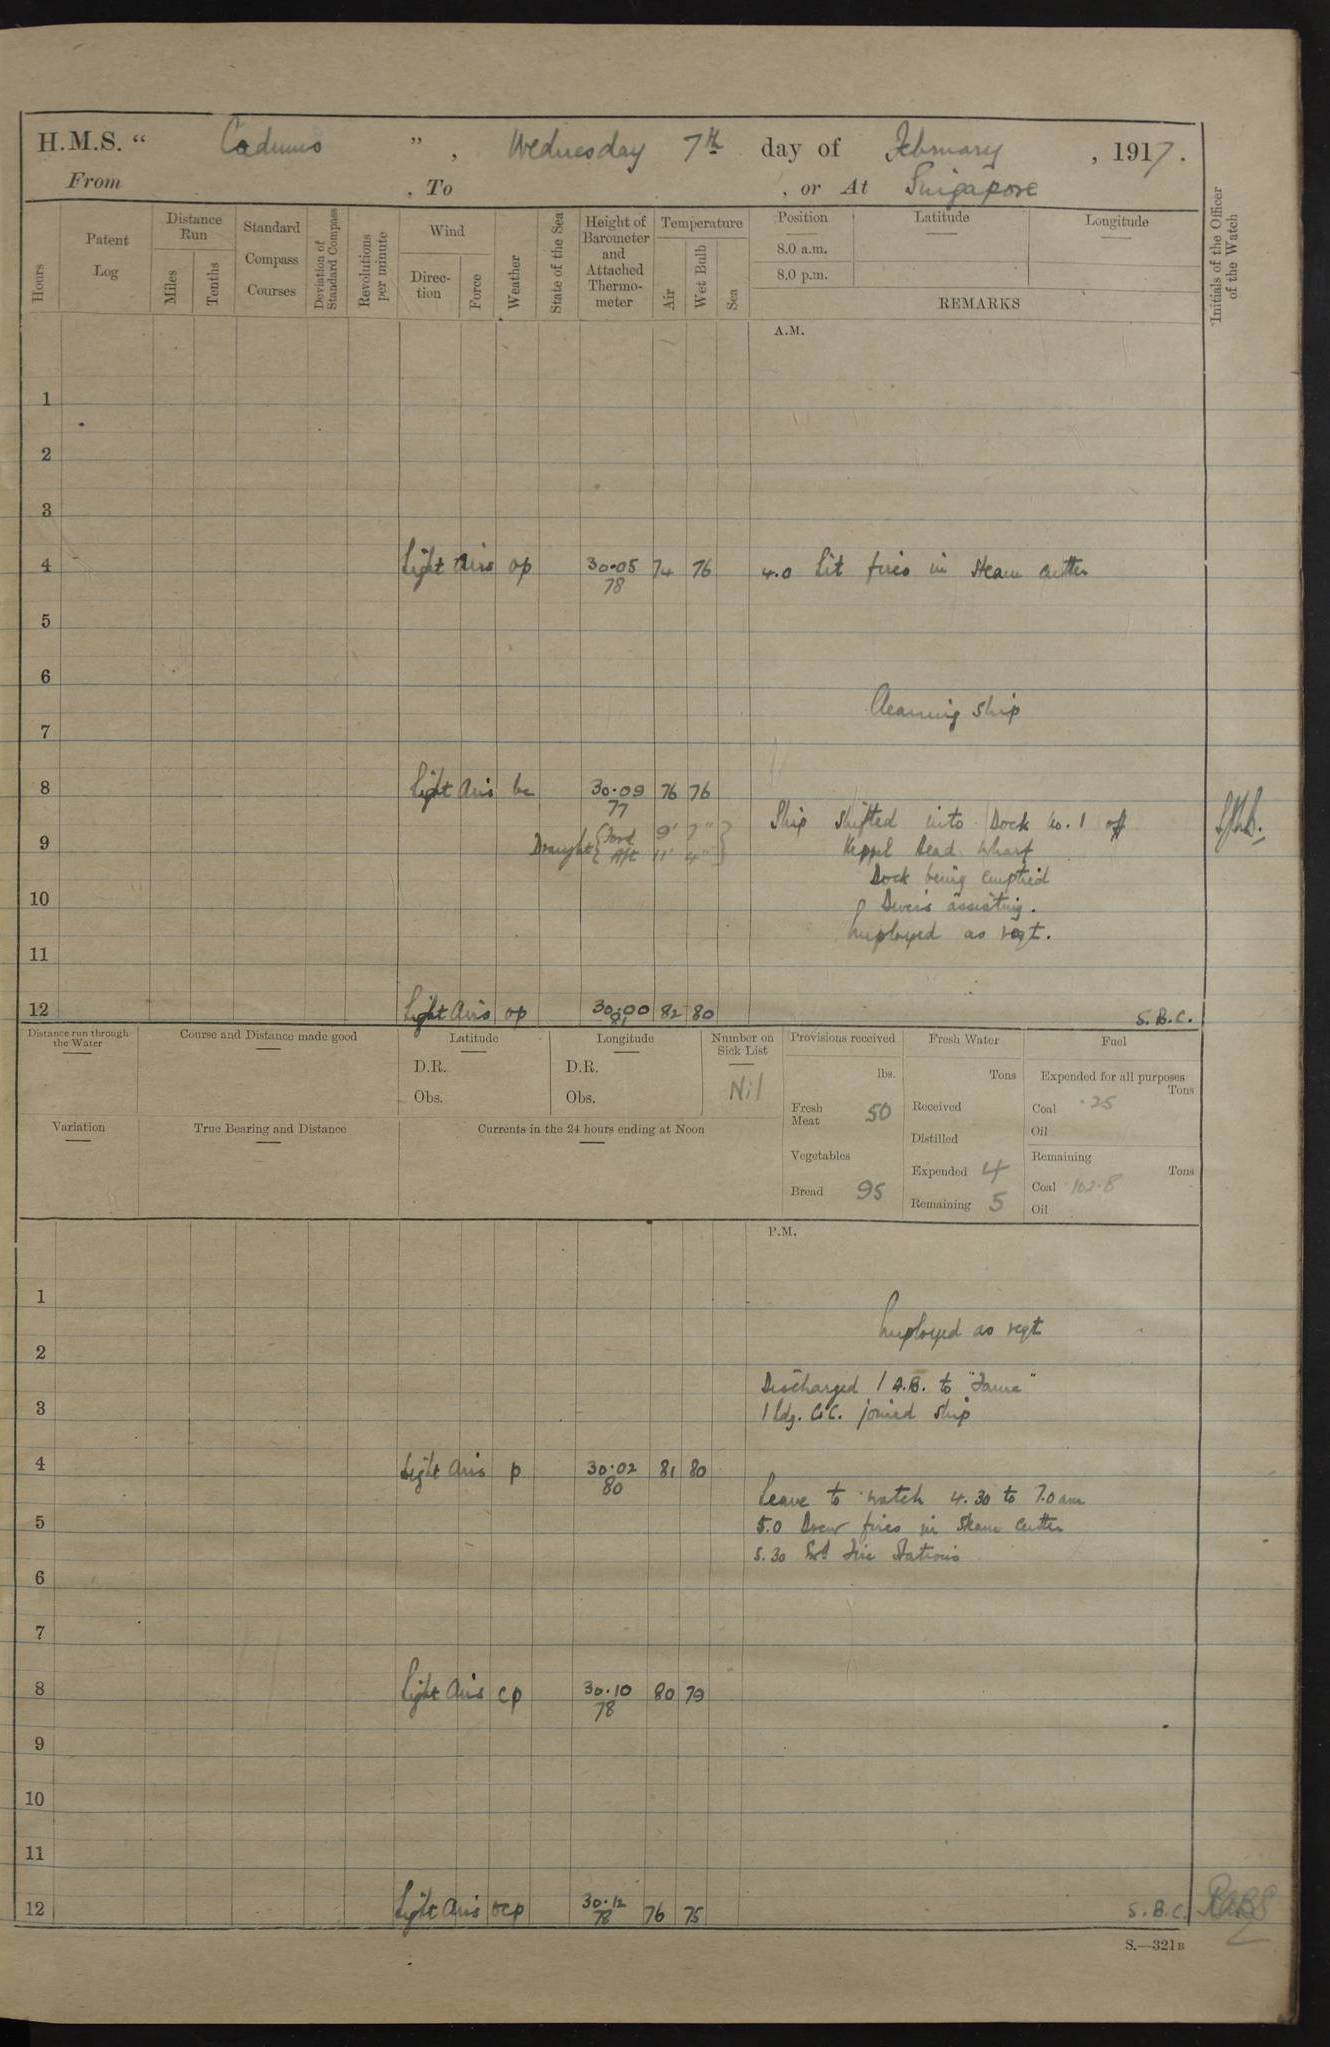 H.M.S. " Cadmus ", Wednesday 7th day of February, 1917.
From , To , or At Singapore
Hours
Patent Log
Distance Run
Miles
Tenths
Standard Compass Courses
Deviation of Standard Compass
Revolutions per minute
Wind
Direction
Force
Weather
State of the Sea
Height of Barometer and Attached Thermometer
Temperature
Air
Wet Bulb
Sea
Position
Latitude
Longitude
8.0 a.m.
8.0 p.m.
REMARKS
Initials of the Officer of the Watch
A.M.
1
2
3
4 Light Airs op 30.05 74 76 4.0 Lit fires in Steam Cutter
78
5
6
Cleaning Ship
7
8 Light Airs bc 30.09 76 76
77
Ship shifted into Dock No. 1 off
Draught { Ford 9' 7" }
9 { Aft 11' 4" } Keppel Dead Wharf
Dock being emptied
10 Divers assisting.
Employed as reqt.
11
12 Light Airs op 30.00 82 80 S.B.C.
81
Distance run through the Water
Course and Distance made good
Latitude
D.R.
Obs.
Longitude
D.R.
Obs.
Number on Sick List
Nil
Provisions received
lbs.
Fresh Meat 50
Vegetables
Bread 95
Fresh Water
Tons
Received
Distilled
Expended 4
Remaining 5
Fuel
Expended for all purposes
Tons
Coal .25
Oil
Remaining
Tons
Coal 102.8
Oil
Variation
True Bearing and Distance
Currents in the 24 hours ending at Noon
P.M.
1
Employed as reqt
2
Discharged 1 A.B. to "Fame"
3 1 Ldg. joined ship
4 Light Airs p 30.02 81 80
80
Leave to watch 4.30 to 7.0 am
5 5.0 Drew fires in Steam Cutter
5.30 Fire Stations
6
7
8 Light Airs cp 30.10 80 79
78
9
10
11
12 Light Airs ocp 30.12 76 75 S.B.C.
78
S.—321B